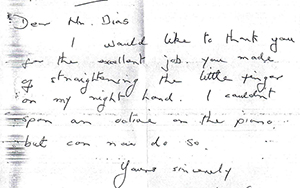 Dear Mr. Dias
I would like to thank you
for the excellent job you made
of straightening the little finger
on my right hand. I couldn't
span an octave on the piano
but can now do so.
Yours sincerely